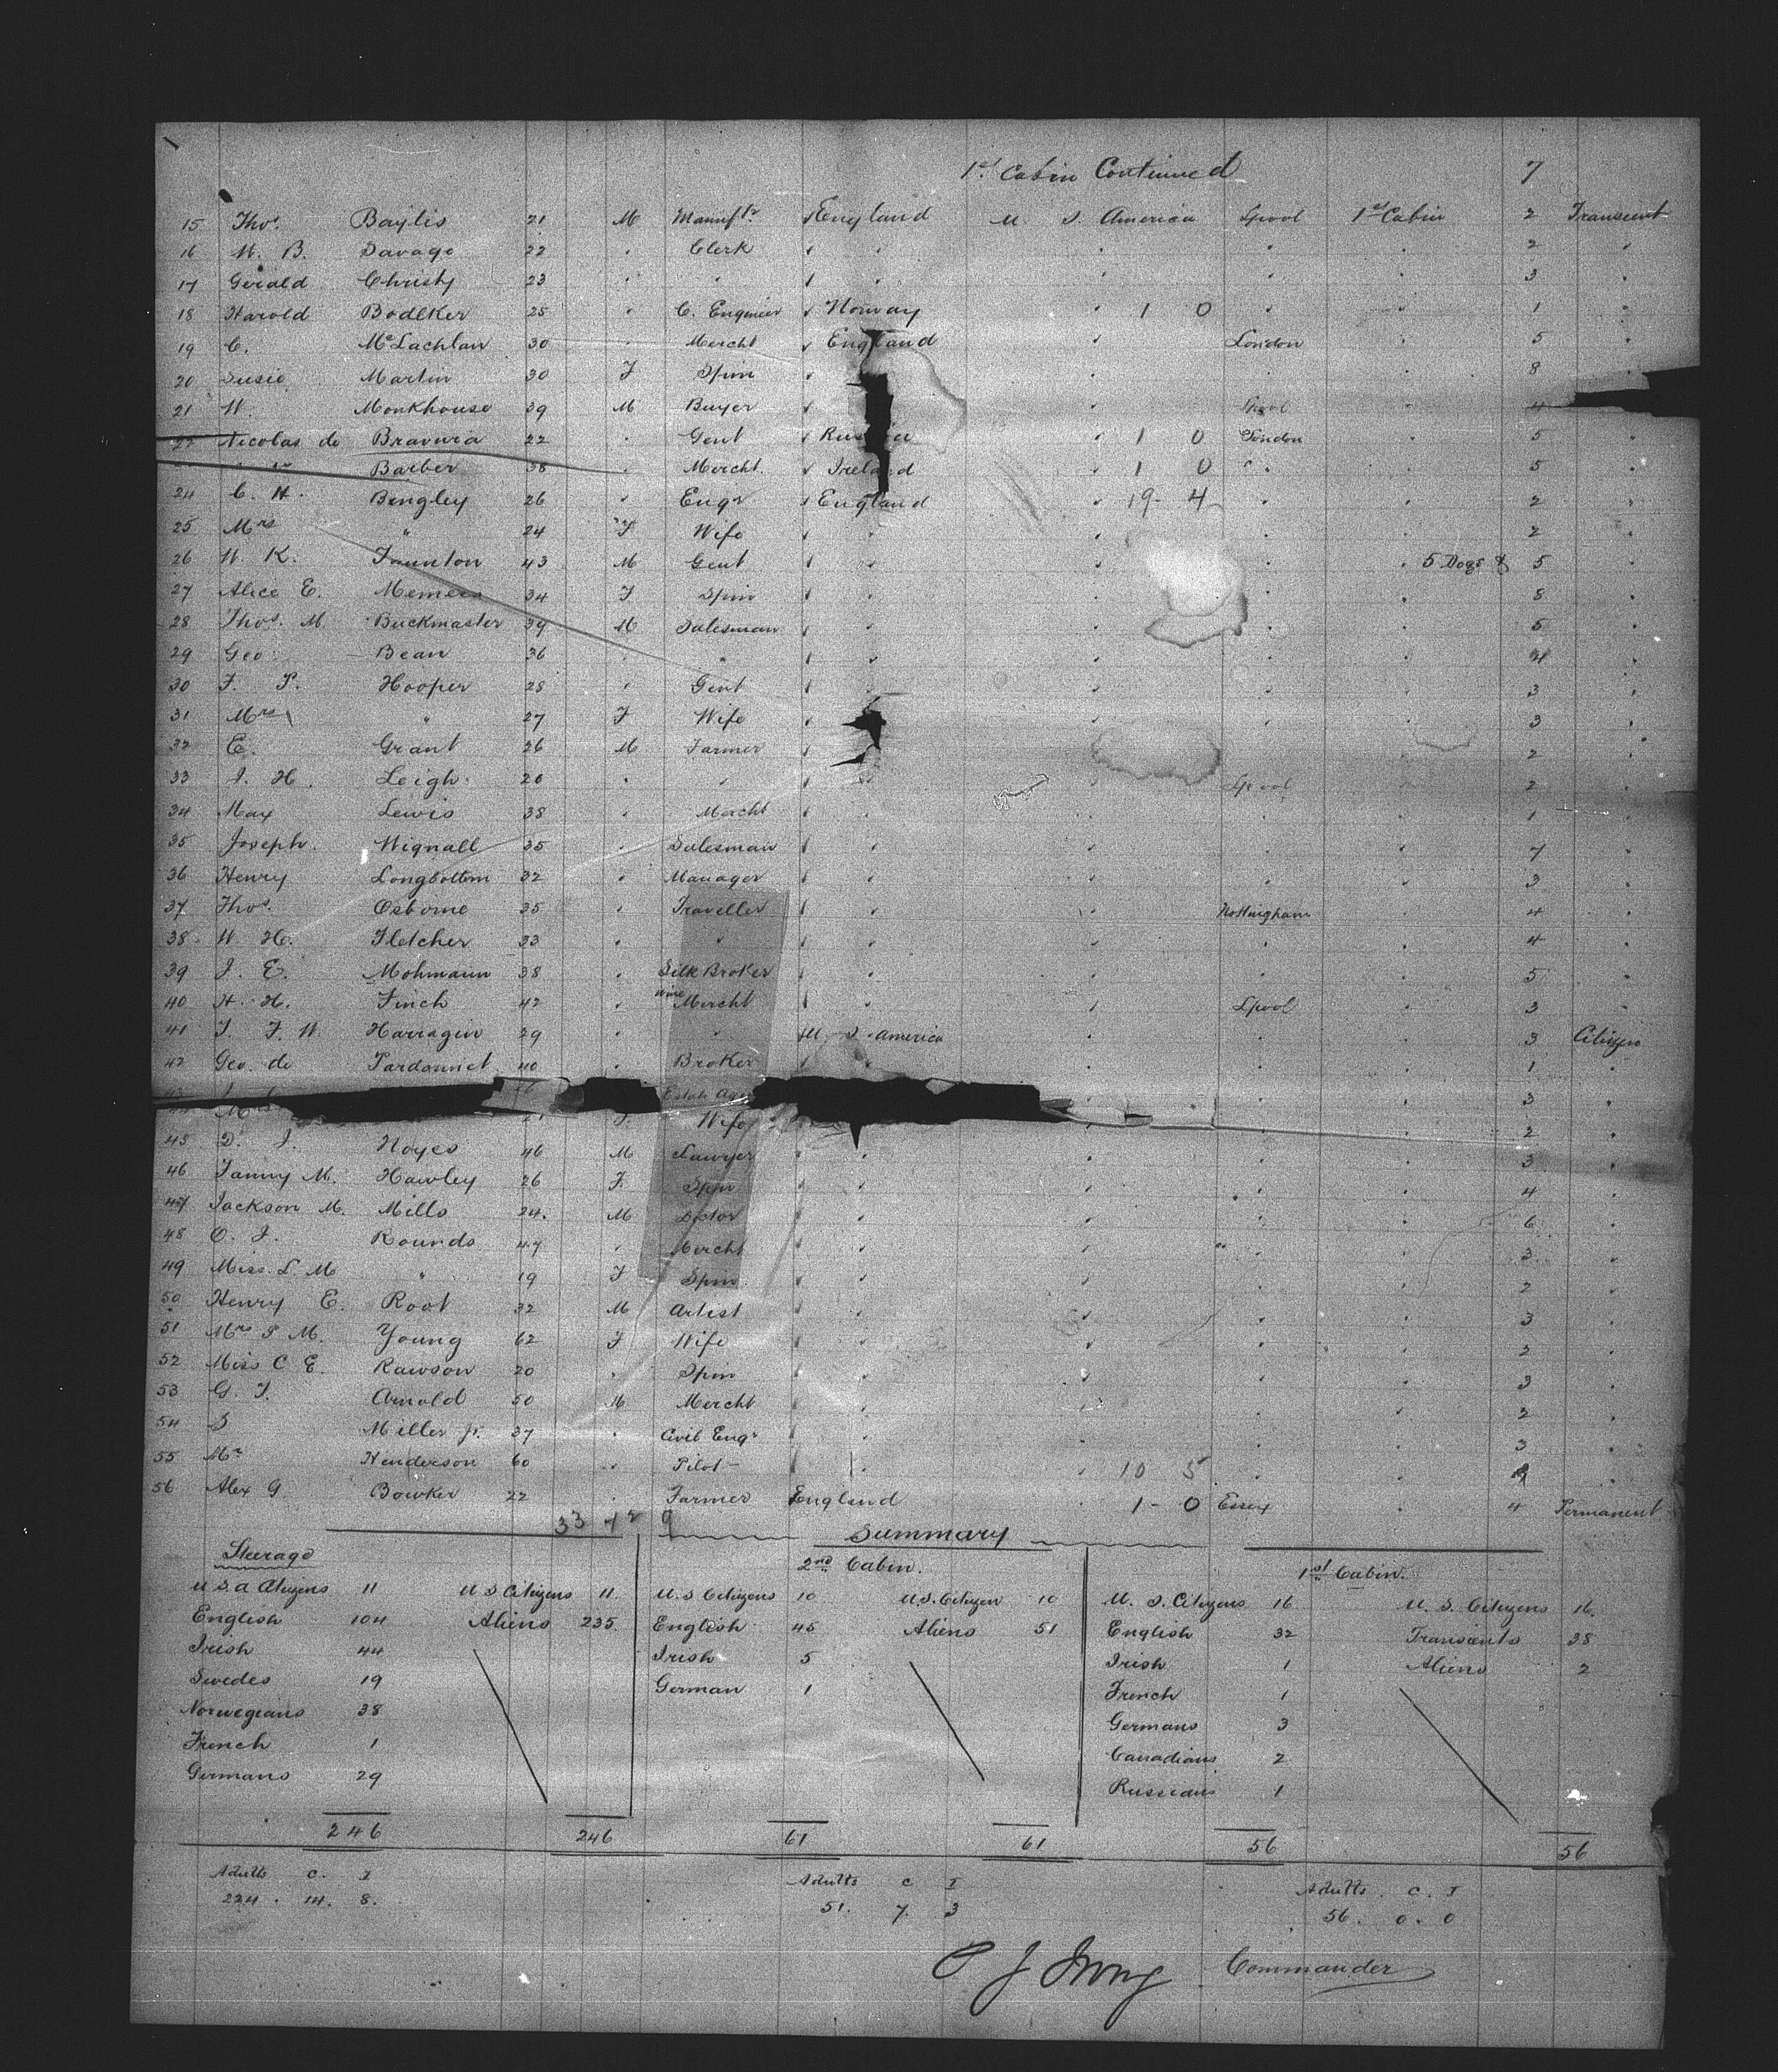 1st Cabin Continued 7
15 Thos. Baylis 21 M Manuftr England U. S. America Lpool 1st Cabin 2 Transient
16 W. B. Savage 22 " Clerk " " " " " 2 "
17 Gerald Christy 23 " " " " " " 3 "
18 Harold Bodlker 25 " C. Engineer Norway " 1 0 " " 1 "
19 C. McLachlan 30 " Mercht England " London " 5 "
20 Susie Martin 30 F Spin " " " " 8 "
21 W. Monkhouse 39 M Buyer " Lpool " 4
22 Nicolas de Bravura 22 " Gent Russia " 1 0 London " 5 "
Barber 38 " Mercht. Ireland " 1 0 " " 5 "
24 C. H. Bengley 26 " Engr England " 19 - 4 " " 2 "
25 Mrs " 24 F Wife " " " " 2 "
26 W. K. Taunton 43 M Gent " " " 5 Dogs & 5 "
27 Alice E. 34 F Spin " " " " 8 "
28 Thos. M. Buckmaster 39 M Salesman " " " " 5 "
29 Geo. Bean 36 " " " " " " 4 "
30 F. P. Hooper 28 " Gent " " " " 3 "
31 Mrs " 27 F Wife " " " " 3 "
32 E. Grant 26 M Farmer " " " " 2 "
33 J. H. Leigh 20 " " " " Lpool " 2 "
34 Max Lewis 38 " Mercht " " " " 1 "
35 Joseph. Wignall 35 " Salesman " " " " 7 "
36 Henry Longbottom 32 " Manager " " " " 3 "
37 Thos. Osborne 35 " Traveller " " Nottingham " 4 "
38 W. H. Fletcher 33 " " " " " " 4 "
39 J. E. Mohmann 38 " Silk Broker " " " " 5 "
40 H. H. Finch 42 " Wine Mercht " " Lpool " 3 "
41 T. F. W. Harragin 29 " " U. S. America " " " 3 Citizen
42 Geo. de Pardonnet 40 " Broker " " " 1 "
43 Estate Agt " " " 3 "
44 Mrs 21 F. Wife " " " 2 "
45 D. J. Noyes 46 M Lawyer " " " " 3 "
46 Fanny M. Hawley 26 F. Spin " " " " 4 "
47 Jackson M. Mills 24. M Doctor " " " " 6 "
48 O. J. Rounds 47 " Mercht " " " " 3 "
49 Miss. L. M " 19 F Spin " " " " 2 "
50 Henry E. Root 32 M Artist " " " " 3 "
51 Mrs P M. Young 62 F Wife " " " " 2 "
52 Miss C E. Rawson 20 " Spin " " " " 3 "
53 G. T. Arnold 50 M Mercht " " " " 2 "
54 S Miller jr. 37 " Civil Engr " " " " 3 "
55 Mr Henderson 60 " Pilot " " 10 5 " " "
56 Alex G. Bowker 22 " Farmer England 1 - 0 Essex " 4 Permanent
33 9 Summary
Steerage 2nd Cabin. 1st Cabin.
U.S.A Citizens 11 U S Citizens 11. U.S Citizens 10 U.S. Citizen 10 U. S. Citizens 16 U. S. Citizens 16.
English 104 Aliens 235. English 45 Aliens 51 English 32 Transients 38
Irish 44 Irish 5 Irish 1 Aliens 2
Swedes 19 German 1 French 1
Norwegians 38 Germans 3
French 1 Canadians 2
Germans 29 Russians 1
246 246 61 61 56 56
Adults C. I Adults C I Adults. C. I
224. 14. 8. 51. 7. 3 56. 0. 0
Commander